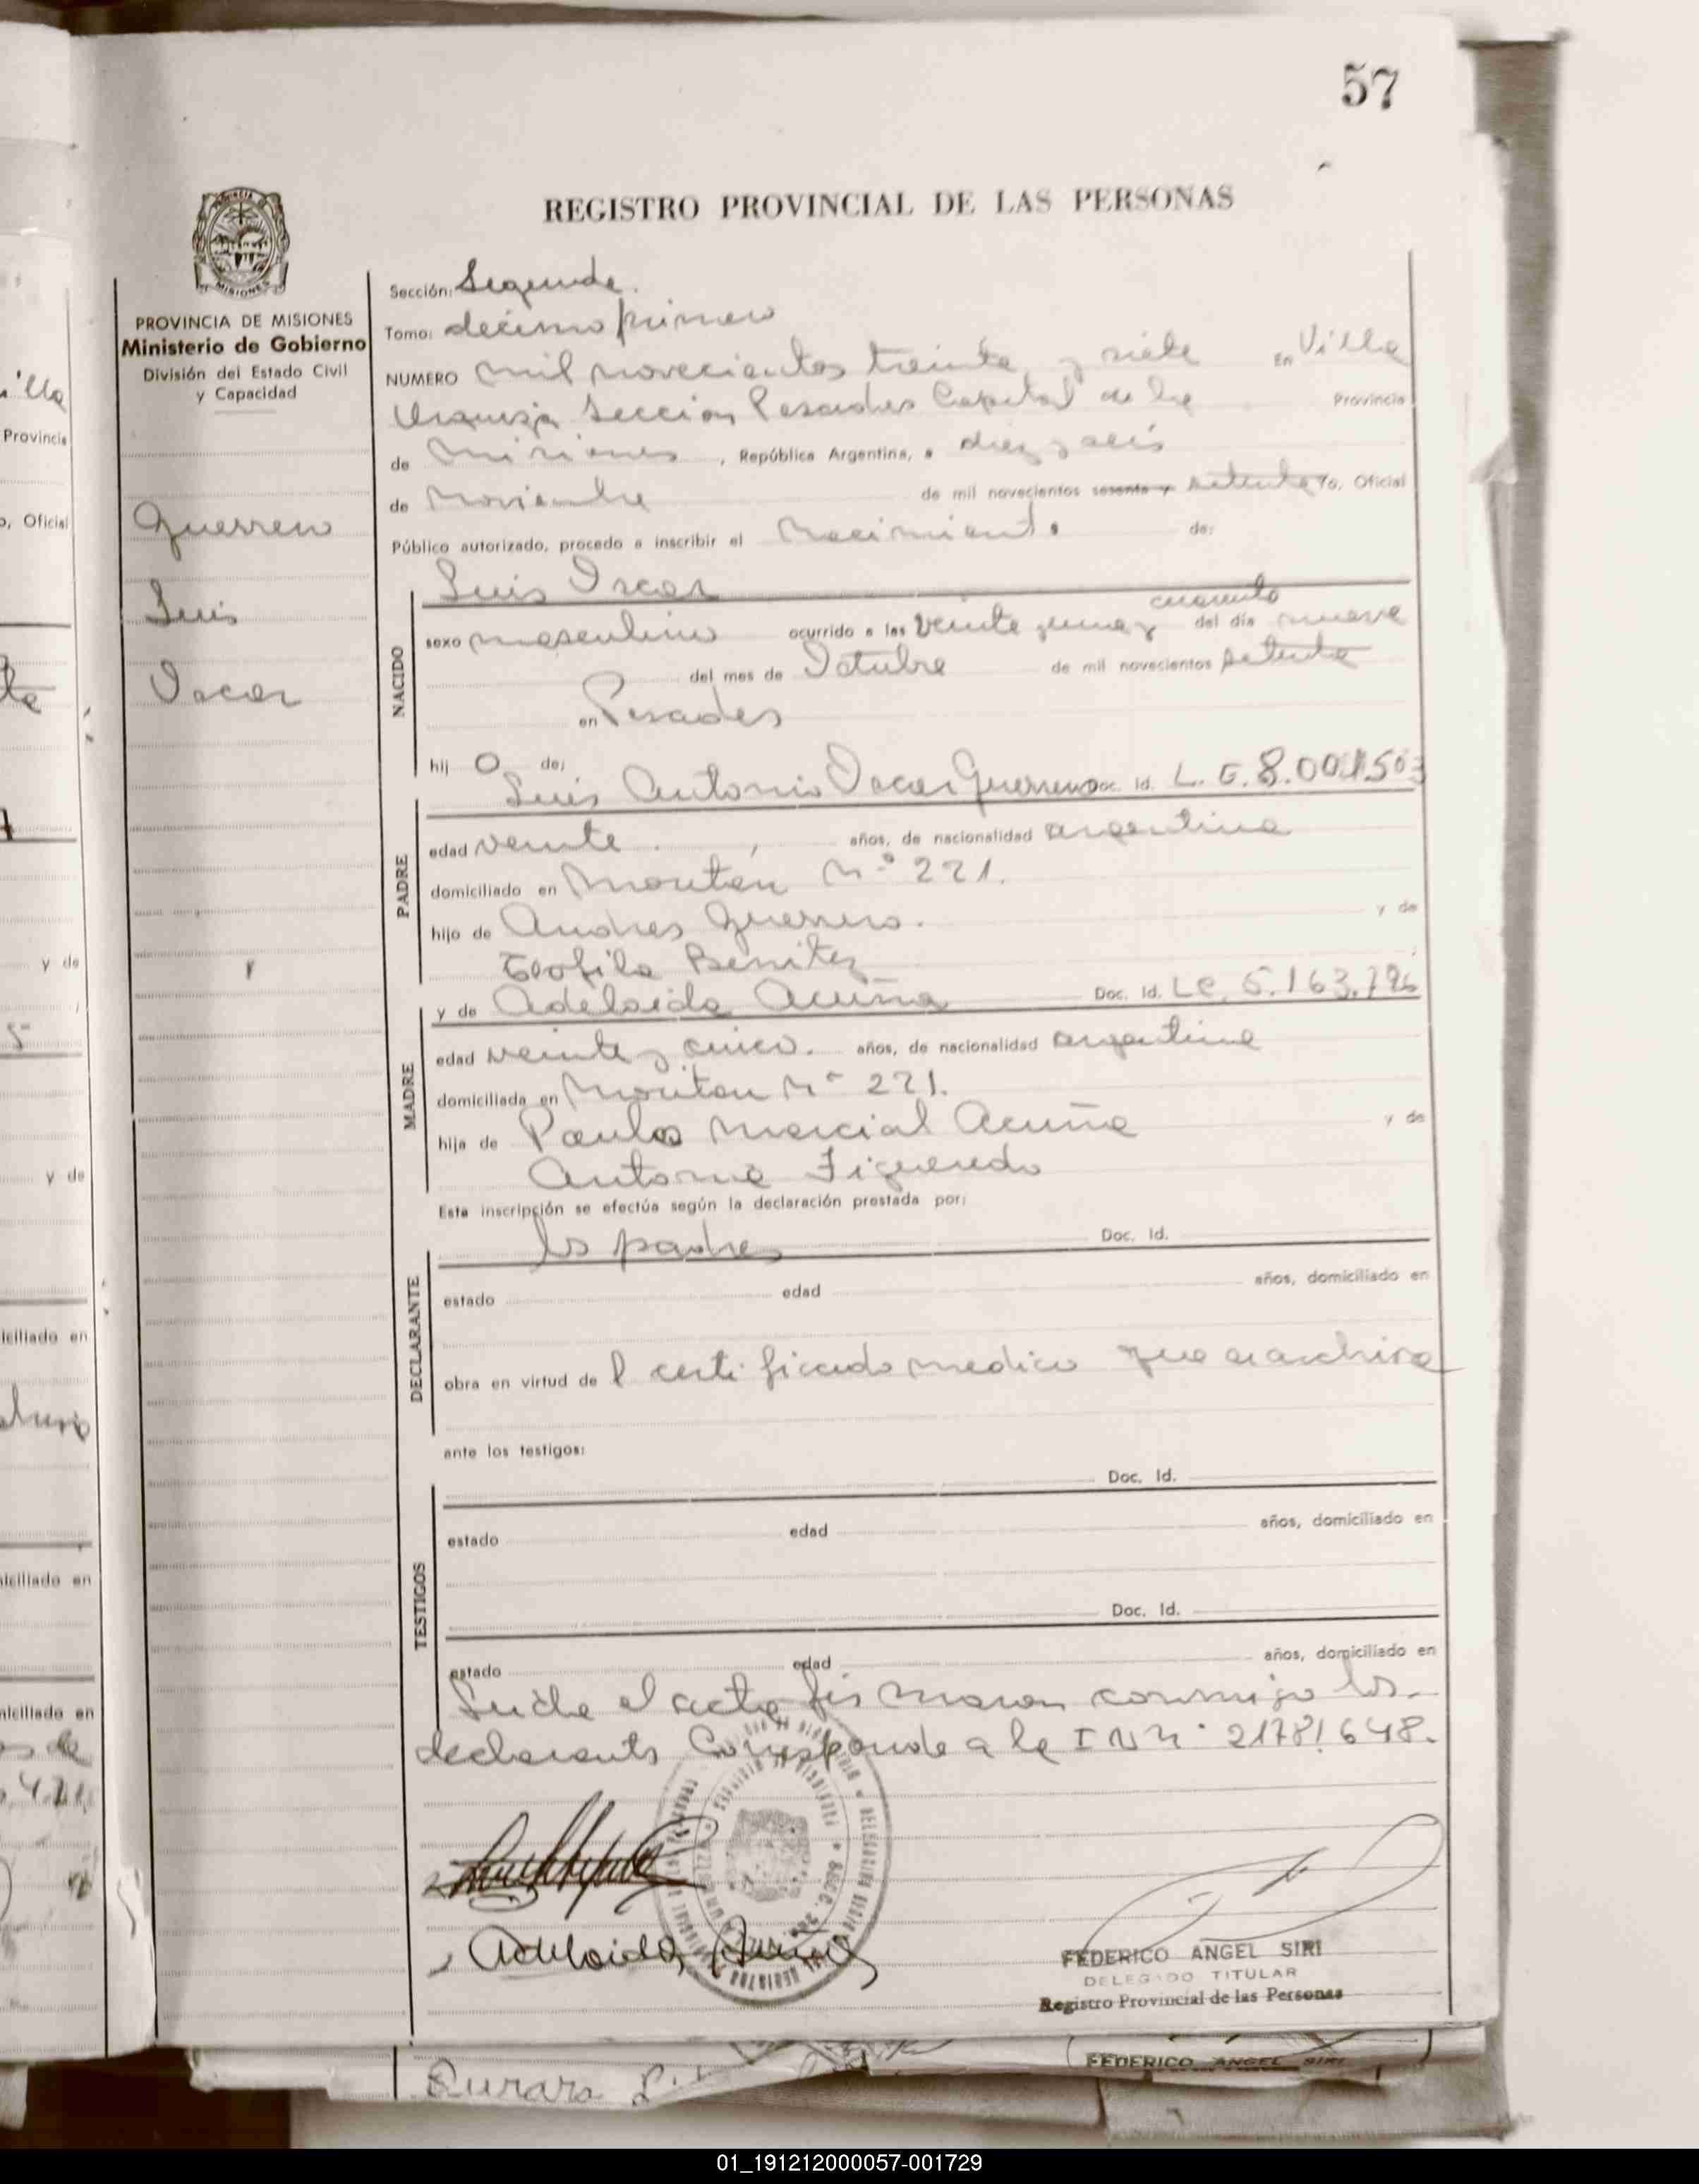 57
REGISTRO PROVINCIAL DE LAS PERSONAS
PROVINCIA DE MISIONES
Ministerio de Gobierno
División del Estado Civil
y Capacidad
Guerrero
Luis
Oscar
Sección: Segunda.
Tomo: décimo primero
NUMERO mil novecientos treinta y siete EN Villa
Urquiza Sección Posadas Capital de la Provincia
de Misiones, República Argentina, a diez y seis
de Noviembre de mil novecientos sesenta y setenta Yo, Oficial
Público autorizado, procedo a inscribir el Nacimiento de:
Luis Oscar
NACIDO
cuarenta
sexo masculino ocurrido a las veinte y una y del día nueve
del mes de Octubre de mil novecientos setenta
en Posadas
hij o de:
Luis Antonio Oscar Guerrero Doc. Id. L. E. 8.001.503
PADRE
edad veinte años, de nacionalidad argentina
domiciliado en N° 221.
hijo de Andres Guerrero. y de
Teofila Benitez
y de Adelaida Acuña Doc. Id. LC. 5.163.796
MADRE
edad veinte y cinco. años, de nacionalidad argentina
domiciliada en N° 221.
hija de Paulo Marcial Acuña y de
Antonia Figueredo
Esta inscripción se efectúa según la declaración prestada por:
los padres Doc. Id.
DECLARANTE
estado edad años, domiciliado en
obra en virtud de l certificado medico que se archiva
ante los testigos:
Doc. Id.
TESTIGOS
estado edad años, domiciliado en
Doc. Id.
estado edad años, domiciliado en
Leida el acta firmaron conmigo los
declarants Corresponde a la I N N° 21781648.
Adelaida Acuña
FEDERICO ANGEL SIRI
DELEGADO TITULAR
Registro Provincial de las Personas
FEDERICO ANGEL SIRI
01_191212000057-001729